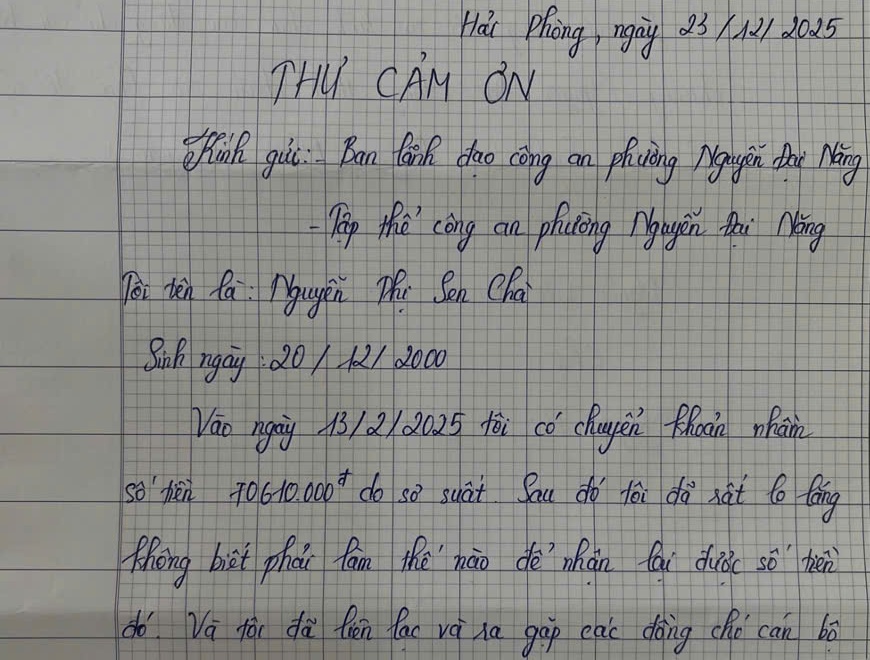 Hải Phòng, ngày 23/12/2025
THƯ CẢM ƠN
Kính gửi: - Ban lãnh đạo công an phường Nguyễn Đại Năng
- Tập thể công an phường Nguyễn Đại Năng
Tôi tên là: Nguyễn Thị Sen Chà
Sinh ngày: 20/12/2000
Vào ngày 13/2/2025 tôi có chuyển khoản nhầm
số tiền 70610.000đ do sơ suất. Sau đó tôi đã rất lo lắng
không biết phải làm thế nào để nhận lại được số tiền
đó. Và tôi đã liên lạc và ra gặp các đồng chí cán bộ